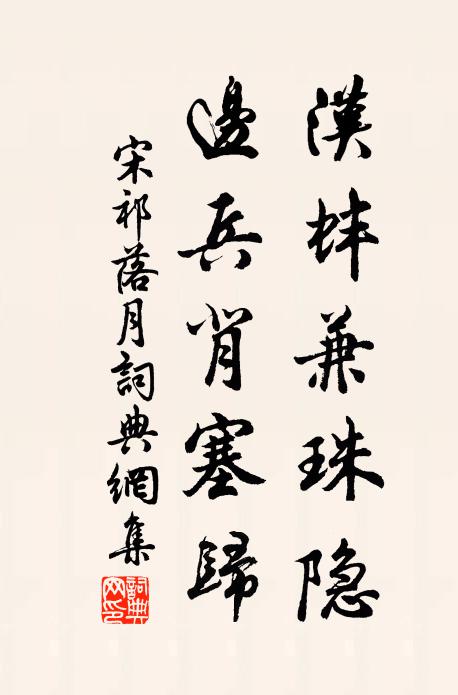 漢蚌兼珠隐
邊兵背塞歸
宋祁落月詞典網集
詞典網印